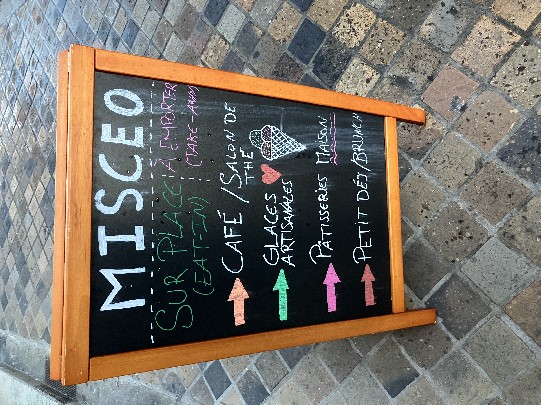 MISCEO
SUR PLACE
(EAT-IN)
À EMPORTER
(TAKE-AWAY)
CAFÉ / SALON DE
THÉ
GLACES
ARTISANALES
PATISSERIES MAISON
PETIT DÉJ / BRUNCH